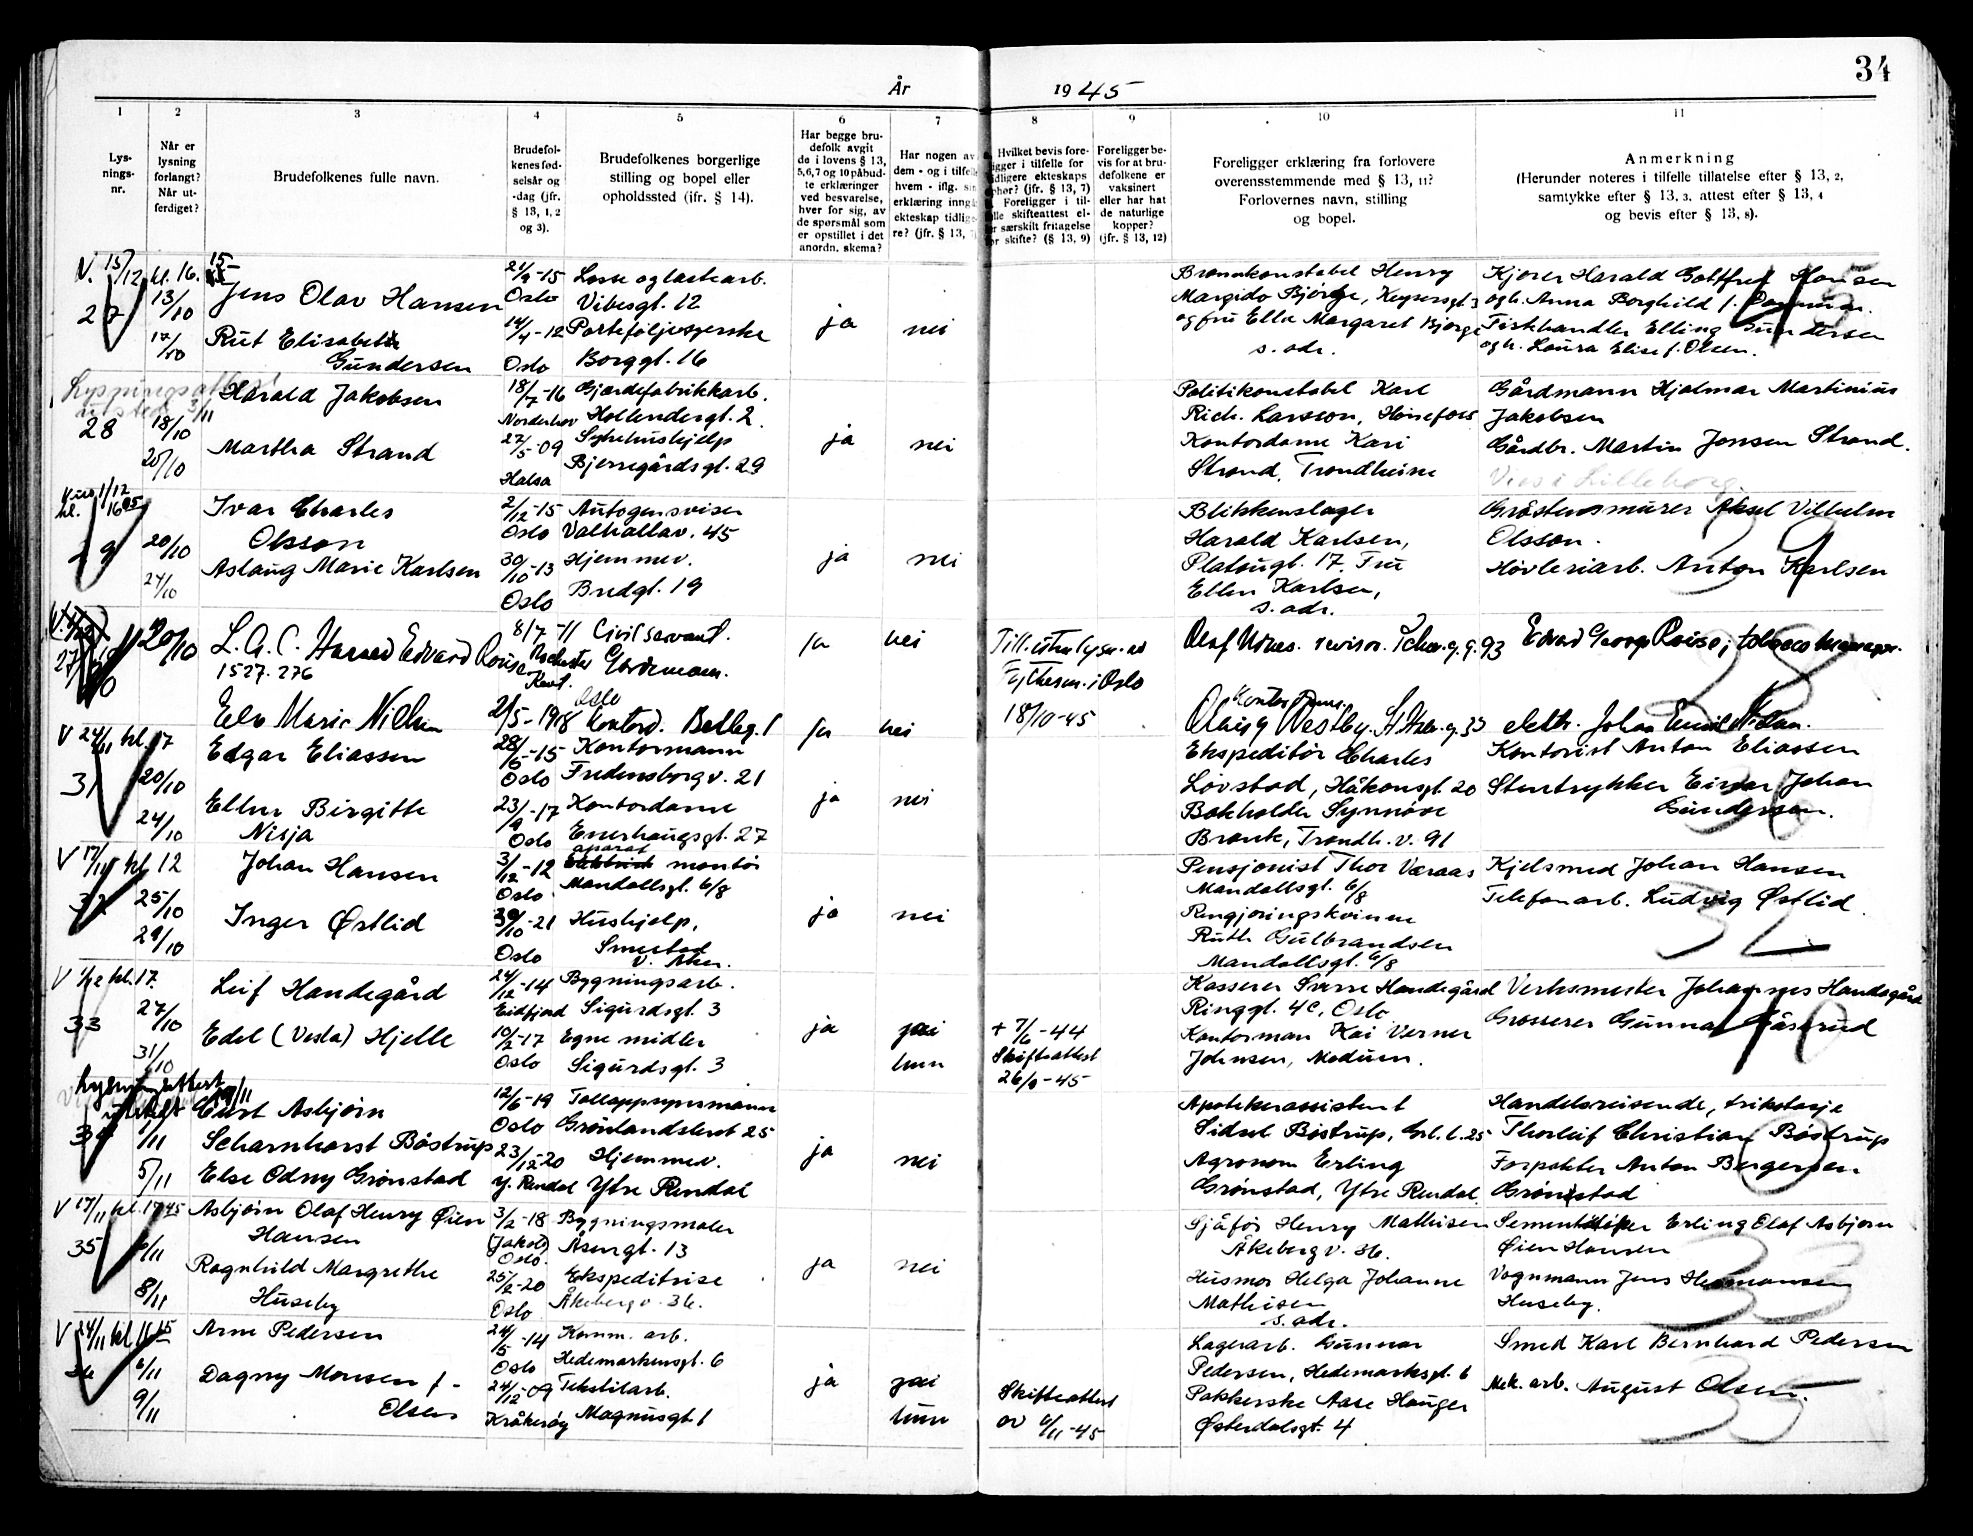 34
År 1945
1 2 3 4 5 6 7 8 9 10 11
Lys-
nings-
nr.
Når er
lysning
forlangt?
Når ut-
ferdiget?
Brudefolkenes fulle navn.
Brudefol-
kenes fød-
selsår og
-dag (jfr.
§ 13, 1, 2
og 3).
Brudefolkenes borgerlige
stilling og bopel eller
opholdssted (ifr. § 14).
Har begge bru-
defolk avgit
de i lovens § 13,
5,6,7 og 10 påbud-
te erklæringer
ved besvarelse,
hver for sig, av
de spørsmål som
er opstillet i det
anordn. skema?
Har nogen av
dem - og i tilfelle
hvem - iflg. sin
erklæring inngå
ekteskap tidlige-
re? (jfr. § 13,
Hvilket bevis fore-
ligger i tilfelle for
tidligere ekteskaps
ophør? (jfr. § 13, 7)
Foreligger i til-
felle skifteattest el-
ler særskilt fritagelse
for skifte? (§ 13, 9)
Foreligger be-
vis for at bru-
defolkene er
vaksinert
eller har hat
de naturlige
kopper?
(jfr. § 13, 12)
Foreligger erklæring fra forlovere
overensstemmende med § 13, 11?
Forlovernes navn, stilling
og bopel.
Anmerkning
(Herunder noteres i tilfelle tillatelse efter § 13, 2,
samtykke efter § 13, 3, attest efter § 13, 4
og bevis efter § 13, 8).
V. 15/12 kl. 16.15
27
13/10
17/10
Jens Olav Hansen
Rut Elisabeth
Gundersen
21/9-15
Oslo
14/4-12
Oslo
Losse og lastearb.
Vibesgt. 12
Porteføljesyerske
Borggt. 16
ja
nei
Brannkonstabel Henry
Margido Bjørge, Keysersgt. 3
og fru Ella Margaret Bjørge
s. adr.
Kjører Harald Gottfred Hansen
og h. Anna Borghild f.
Fiskhandler Elling Gundersen
og h. Laura Elise f. Olsen.
15
Lysningsattest
utstedt 3/11
28
18/10
20/10
Harald Jakobsen
Martha Strand
18/7-16
Norderhov
27/5-09
Halsa
Gjærdefabrikkarb.
Hollendergt. 2
Sykehushjelp
Bjerregårdsgt. 29
ja
nei
Politikonstabel Karl
Rich. Larsson, Hønefoss
Kontordame Kari
Strand, Trondheim
Gårdmann Hjalmar Martinius
Jakobsen
Gårdbr. Martin Jensen Strand.
Vies i Lilleborg.
1/12
kl. 16 05
29
20/10
24/10
Ivar Charles
Olsson
Aslaug Marie Karlsen
2/12-15
Oslo
30/10-13
Oslo
Autogensveiser
Valhallav. 45
Hjemmev.
Bredgt. 19
ja
nei
Blikkenslager
Harald Karlsen,
Platougt. 17. Fru
Ellen Karlsen,
s. adr.
Gråstensmurer Aksel Vilhelm
Olsson.
Høvleriarb. Anton Karlsen
20/10
L. A. C. Edvard Rouse
1527.276
Marie Nielsen
8/7-11
Rochester
Kent.
21/5-1918
Oslo
Civil servant.
Gardermoen.
Kontord.
ja
nei
ja
nei
i Oslo
18/10-45
Olaf revisor.
93
Kontordame
Aslaug Vestby.
Edvard Georg Rouse, tobacco manager.
Johan Emil Nielsen.
28
V 24/11 kl. 17
31
20/10
24/10
Edgar Eliassen
Ellen Birgitte
Nisja
28/6-15
Oslo
23/9-17
Oslo
Kontormann
Fredensborgv. 21
Kontordame
Enerhaugsgt. 27
ja
nei
Ekspeditør Charles
Løvstad, Håkonsgt. 20
Bokholder Synnøve
Bronk, Trondh. v. 91
Kontorist Anton Eliassen
Stentrykker Einar Johan
Gundersen.
36
V 17/11 kl. 12
32
25/10
29/10
Johan Hansen
Inger Østlid
3/12-12
Oslo.
30/10-21
Oslo
aparat
montør
Mandallsgt. 6/8
Hushjelp,
Smestad
v. Aker.
ja
nei
Pensjonist Thor Væraas
Mandallsgt. 6/8
Rengjøringskvinne
Ruth Gulbrandsen
Mandallsgt. 6/8
Kjelsmed Johan Hansen
Telefonarb. Ludvig Østlid.
32
V 1/12 kl. 17.
33
27/10
31/10
Leif Handegård
Edel (Vesla) Hjelle
24/12-14
Eidfjord
10/2-17
Oslo
Bygningsarb.
Sigurdsgt. 3
Egne midler
Sigurdsgt. 3
ja
nei
hun
+ 7/6-44
Skifteattest
26/9-45
Kasserer Sverre Handegård
Ringgt. 4c, Oslo
Kontorman Kai Verner
Johnsen, Modum.
Verksmester Johannes Handegård
Grosserer Gunnar Gåserud
10
Lysningsattest
utstedt 19/11
34
1/11
5/11
Curt Asbjørn
Scharnhorst Bøstrup
Else Odny Grønstad
12/6-19
Oslo
23/12-20
Y. Rendal
Tolloppsynsmann
Grønlandsleret 25
Hjemmev.
Ytre Rendal
ja
nei
Apotekerassistent
Sidsel Bøstrup, Grl. l. 25
Agronom Erling
Grønstad, Ytre Rendal.
Handelsreisende, trikotasje
Thorleif Christian Bøstrup
Forpakter Anton Bergersen
Grønstad
0
V 17/11 kl. 17 45
35
6/11
8/11
Asbjørn Olaf Henry Øien
Hansen
Ragnhild Margrethe
Huseby
3/2-18
(Jakob)
Oslo.
25/2-20
Oslo
Bygningsmaler
Åsengt. 13
Ekspeditrise
Åkebergv. 36.
ja
nei
Sjåfør Henry Mathisen
Åkebergv. 36.
Husmor Helga Johanne
Mathisen
s. adr.
Sementstøper Erling Olaf Asbjørn
Øien Hansen
Vognmann Jens Hermansen
Huseby.
33
V 24/11 kl 16 15
36
6/11
9/11
Arne Pedersen
Dagny Monsen f.
Olsen
24/5-14
Oslo
24/12-09
Kråkerøy
Komm. arb.
Hedemarkensgt. 6
Tekstilarb.
Magnusgt. 1
ja
nei
hun
Skifteattest
av 6/11-45
Lagerarb. Gunnar
Pedersen, Hedemarksgt. 6
Pakkerske Aase Hauger
Østerdalsgt. 4
Smed Karl Bernhard Pedersen
Mek. arb. August Olsen.
35